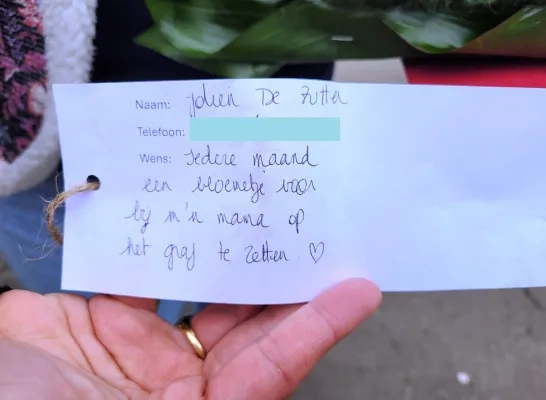 Naam: Jolien De Zutter
Telefoon:
Wens: Iedere maand
een bloemetje voor
bij m'n mama op
het graf te zetten ♡